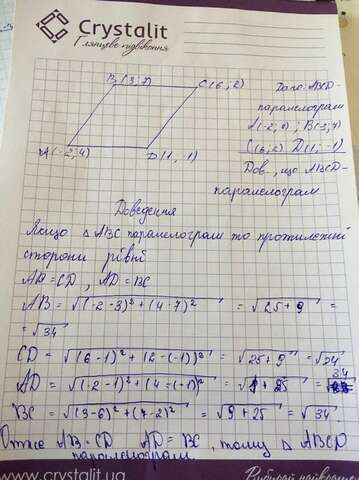 Crystalit
Глянцеве підвіконня
B(3;7)
C(6;2)
A(-2;4)
D(1;-1)
Дано: ABCD-
паралелограм
A(-2;4); B(3;7)
C(6;2) D(1;-1)
Дов., що ABCD-
паралелограм
Доведення
Якщо △ABC паралелограм то протилежні
сторони рівні
AB=CD, AD=BC
AB = √(-2-3)²+(4-7)² = √25+9 =
= √34
CD = √(6-1)²+(2-(-1))² = √25+9 = √34
AD = √(-2-1)²+(4-(-1))² = √9+25 = √34
BC = √(3-6)²+(7-2)² = √9+25 = √34
Отже AB=CD AD=BC, тому △ABCD
паралелограм
www.crystalit.ua
Вибирай найкраще